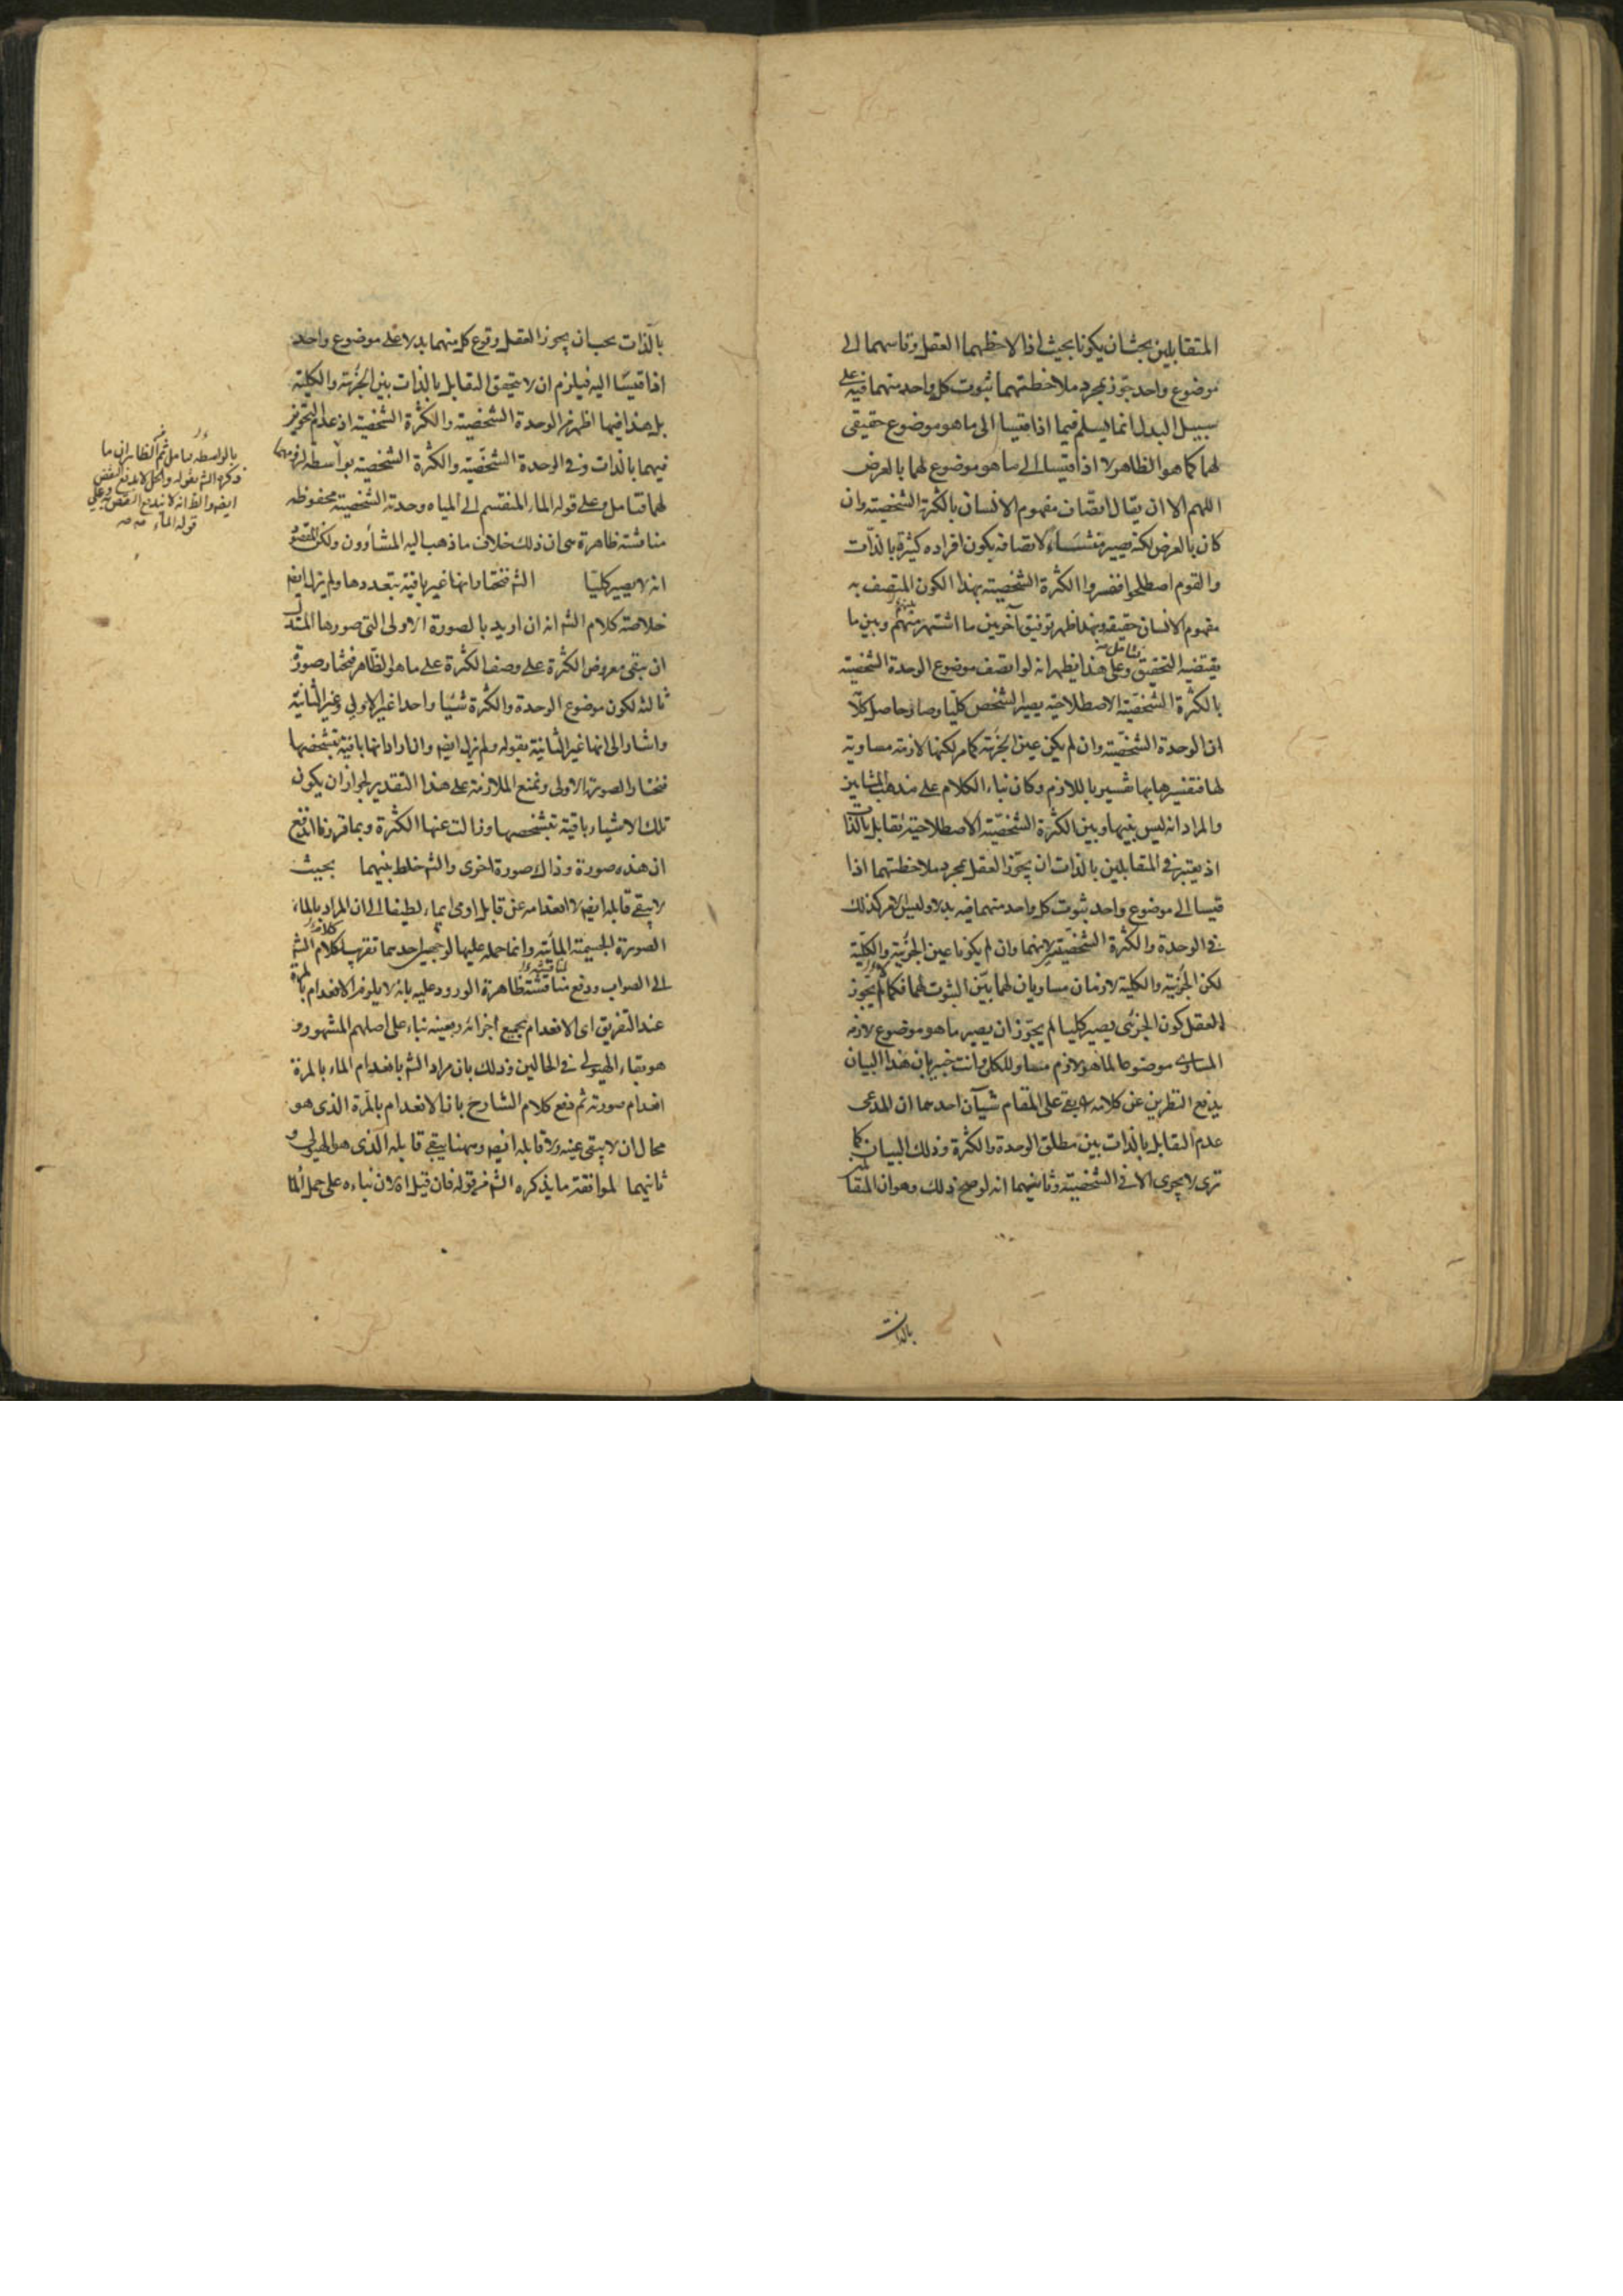 المتقابلين بحثان يكونا بحيث اذا لاحظهما العقل وقاسهما الى
موضوع واحد جوز بمجرد ملاحظتهما ثبوت كل واحد منهما فيه على
سبيل البدل انما يسلم فيما اذا قيسا الى ما هو موضوع حقيقى
لهما كما هو الظاهر لا اذا قيسا الى ما هو موضوع لهما بالعرض
اللهم الا ان يقال اتصاف مفهوم الانسان بالكثرة الشخصية وان
كان بالعرض لكنه يصير لاتصافه بكون افراده كثيرة بالذات
والقوم اصطلحوا ففسروا الكثرة الشخصية بهذا الكون المتصف به
مفهوم الانسان حقيقة وبهذا ظهر توفيق آخر بين ما اشتهر منهم وبين ما
يقتضيه التحقيق وعلى هذا يظهر انه لو اتصف موضوع الوحدة الشخصية
بالكثرة الشخصية الاصطلاحية يصير الشخص كليا وصار حاصل كلا
ان الوحدة الشخصية وان لم يكن عين الجزئية كما مر لكنها لازمة مساوية
لها فتفسيرها بها تفسير باللازم وكان بناء الكلام على مذهب المشايين
والمراد انه ليس بينها وبين الكثرة الشخصية الاصطلاحية تقابل بالذات
اذ يعتبر فى المتقابلين بالذات ان يجوز العقل بمجرد ملاحظتهما اذا
قيسا الى موضوع واحد ثبوت كل واحد منهما فيه بدلا وليس الامر كذلك
فى الوحدة والكثرة الشخصية لانهما وان لم يكونا عين الجزئية والكلية
لكن الجزئية والكلية لازمان مساويان لهما بين الثبوت لهما فكما لم يجوز
العقل كون الجزئى يصير كليا لم يجوز ان يصير ما هو موضوع لازمه
المساوى موضوعا لما هو لازم مساو للكل وانت خبير بان هذا البيان
يدفع النظرين عن كلامه بقى على المقام شيآن احدهما ان المدعى
عدم التقابل بالذات بين مطلق الوحدة والكثرة وذلك البيان كما
ترى لا يجرى الا فى الشخصية وثانيهما انه لو صح ذلك وهو ان المتقابلين
بالذات
بالذات يجب ان يجوز العقل وقوع كل منهما بدلا على موضوع واحد
اذا قيسا اليه فيلزم ان لا يتحقق التقابل بالذات بين الجزئية والكلية
بل هذا فيهما اظهر من الوحدة الشخصية والكثرة الشخصية اذ عدم التجويز
فيهما بالذات وفى الوحدة الشخصية والكثرة الشخصية بواسطة لزومهما
لهما فتامل وعلى قوله الماء المنقسم الى المياه وحدته الشخصية محفوظة
مناقشة ظاهرة هى ان ذلك خلاف ما ذهب اليه المشاؤون ولكن المقصود
انه لا يصير كليا الشر فنختار انها غير باقية بتعددها ولم يزل ايض
خلاصة كلام الشر انه ان اريد بالصورة الاولى التى صورها المستدل
ان يبقى معروض الكثرة على وصف الكثرة على ما هو الظاهر فنختار صورة
ثالثة لكون موضوع الوحدة والكثرة شيئا واحدا غير الاولى وغير الثانية
واشار الى انها غير الثانية بقوله ولم يزل ايض وان اراد انها باقية بتشخصها
فنختار الصورة الاولى ونمنع الملازمة على هذا التقدير لجواز ان يكون
تلك الاشياء باقية بتشخصها وزالت عنها الكثرة وبما قررنا اندفع
ان هذه صورة وذاك صورة اخرى والشر خلط بينهما بحيث
لا يبقى قابله ايض لا انعدامه عن قابل اومى ايماء لطيفا الى ان المراد بالماء
الصورة الجسمية المائية وانما حمله عليها لوجهين احدهما تقريب كلام الشر
الى الصواب ودفع مناقشة ظاهرة الورود عليه بانه لا يلزم الانعدام بالمرة
عند التفريق اى الانعدام بجميع اجزائه وبعينه بناء على اصلهم المشهور و
هو بقاء الهيولى فى الحالين وذلك بان مراد الشر بانعدام الماء بالمرة
انعدام صورته ثم دفع كلام الشارح بان الانعدام بالمرة الذى هو
محال ان لا يبقى عينه ولا قابله ايض وههنا يبقى قابله الذى هو الهيولى و
ثانيهما لموافقة ما يذكره الشر من قوله فان قيل اه لان بناءه على حمل الما
بالواسطة تامل ثم الظاهر ان ما
ذكره الشر بقوله والكل لا يدفع النقض
ايض والظ انه لا يندفع النقض وعلى
قوله الماء منه